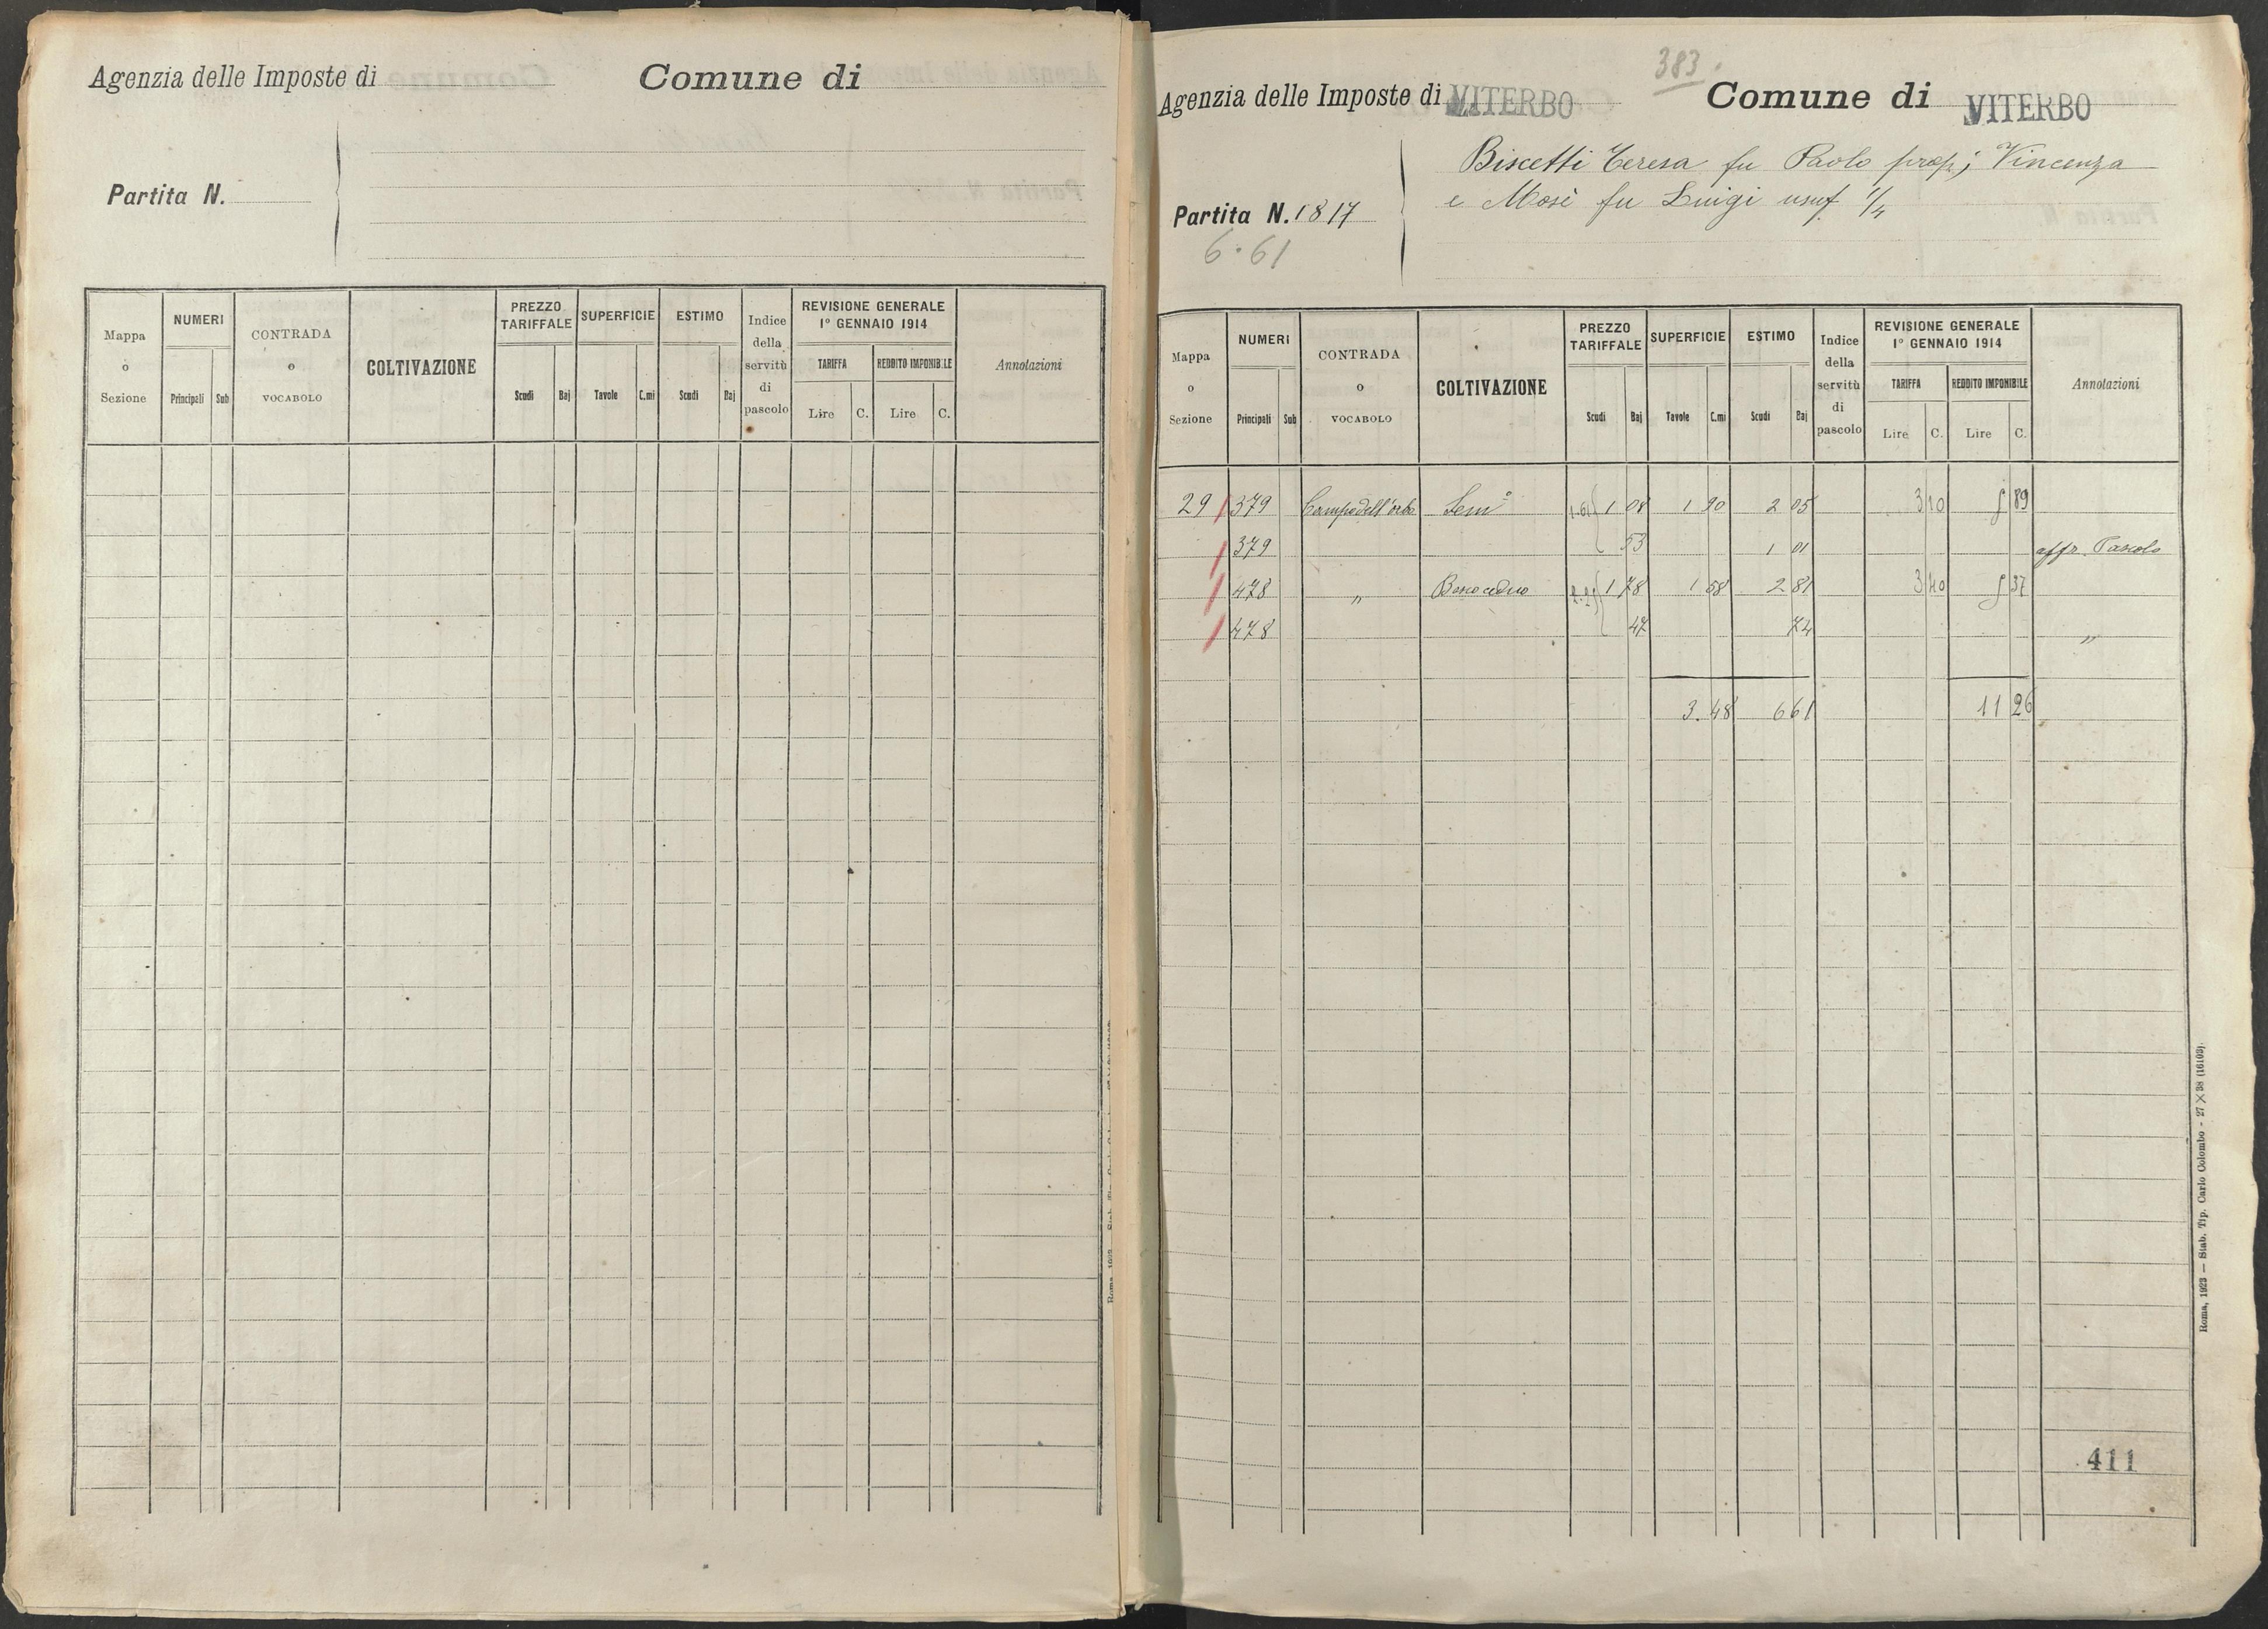 Agenzia delle Imposte di Comune di
Partita N.
Mappa o Sezione NUMERI Principali Sub CONTRADA o VOCABOLO COLTIVAZIONE PREZZO TARIFFALE Scudi Baj SUPERFICIE Tavole C.mi ESTIMO Scudi Baj Indice della servitù di pascolo REVISIONE GENERALE 1° GENNAIO 1914 TARIFFA Lire C. REDDITO IMPONIBILE Lire C. Annotazioni
383.
Agenzia delle Imposte di VITERBO Comune di VITERBO
Biscetti Teresa fu Paolo prop; Vincenza
e Mosè fu Luigi usuf 1/4
Partita N. 1817
6.61
Mappa o Sezione NUMERI Principali Sub CONTRADA o VOCABOLO COLTIVAZIONE PREZZO TARIFFALE Scudi Baj SUPERFICIE Tavole C.mi ESTIMO Scudi Baj Indice della servitù di pascolo REVISIONE GENERALE 1° GENNAIO 1914 TARIFFA Lire C. REDDITO IMPONIBILE Lire C. Annotazioni
29 379 Campo dell'orbo Sem° 1.61 1 08 1 90 2 05 3 10 5 89
379 53 1 01 affr. Pascolo
478 " Bosco ceduo 1 78 1 58 2 81 3 40 5 37
478 47 74 "
3.48 6 61 11 26
411
Roma, 1923 — Stab. Tip. Carlo Colombo - 27 X 38 (16103).